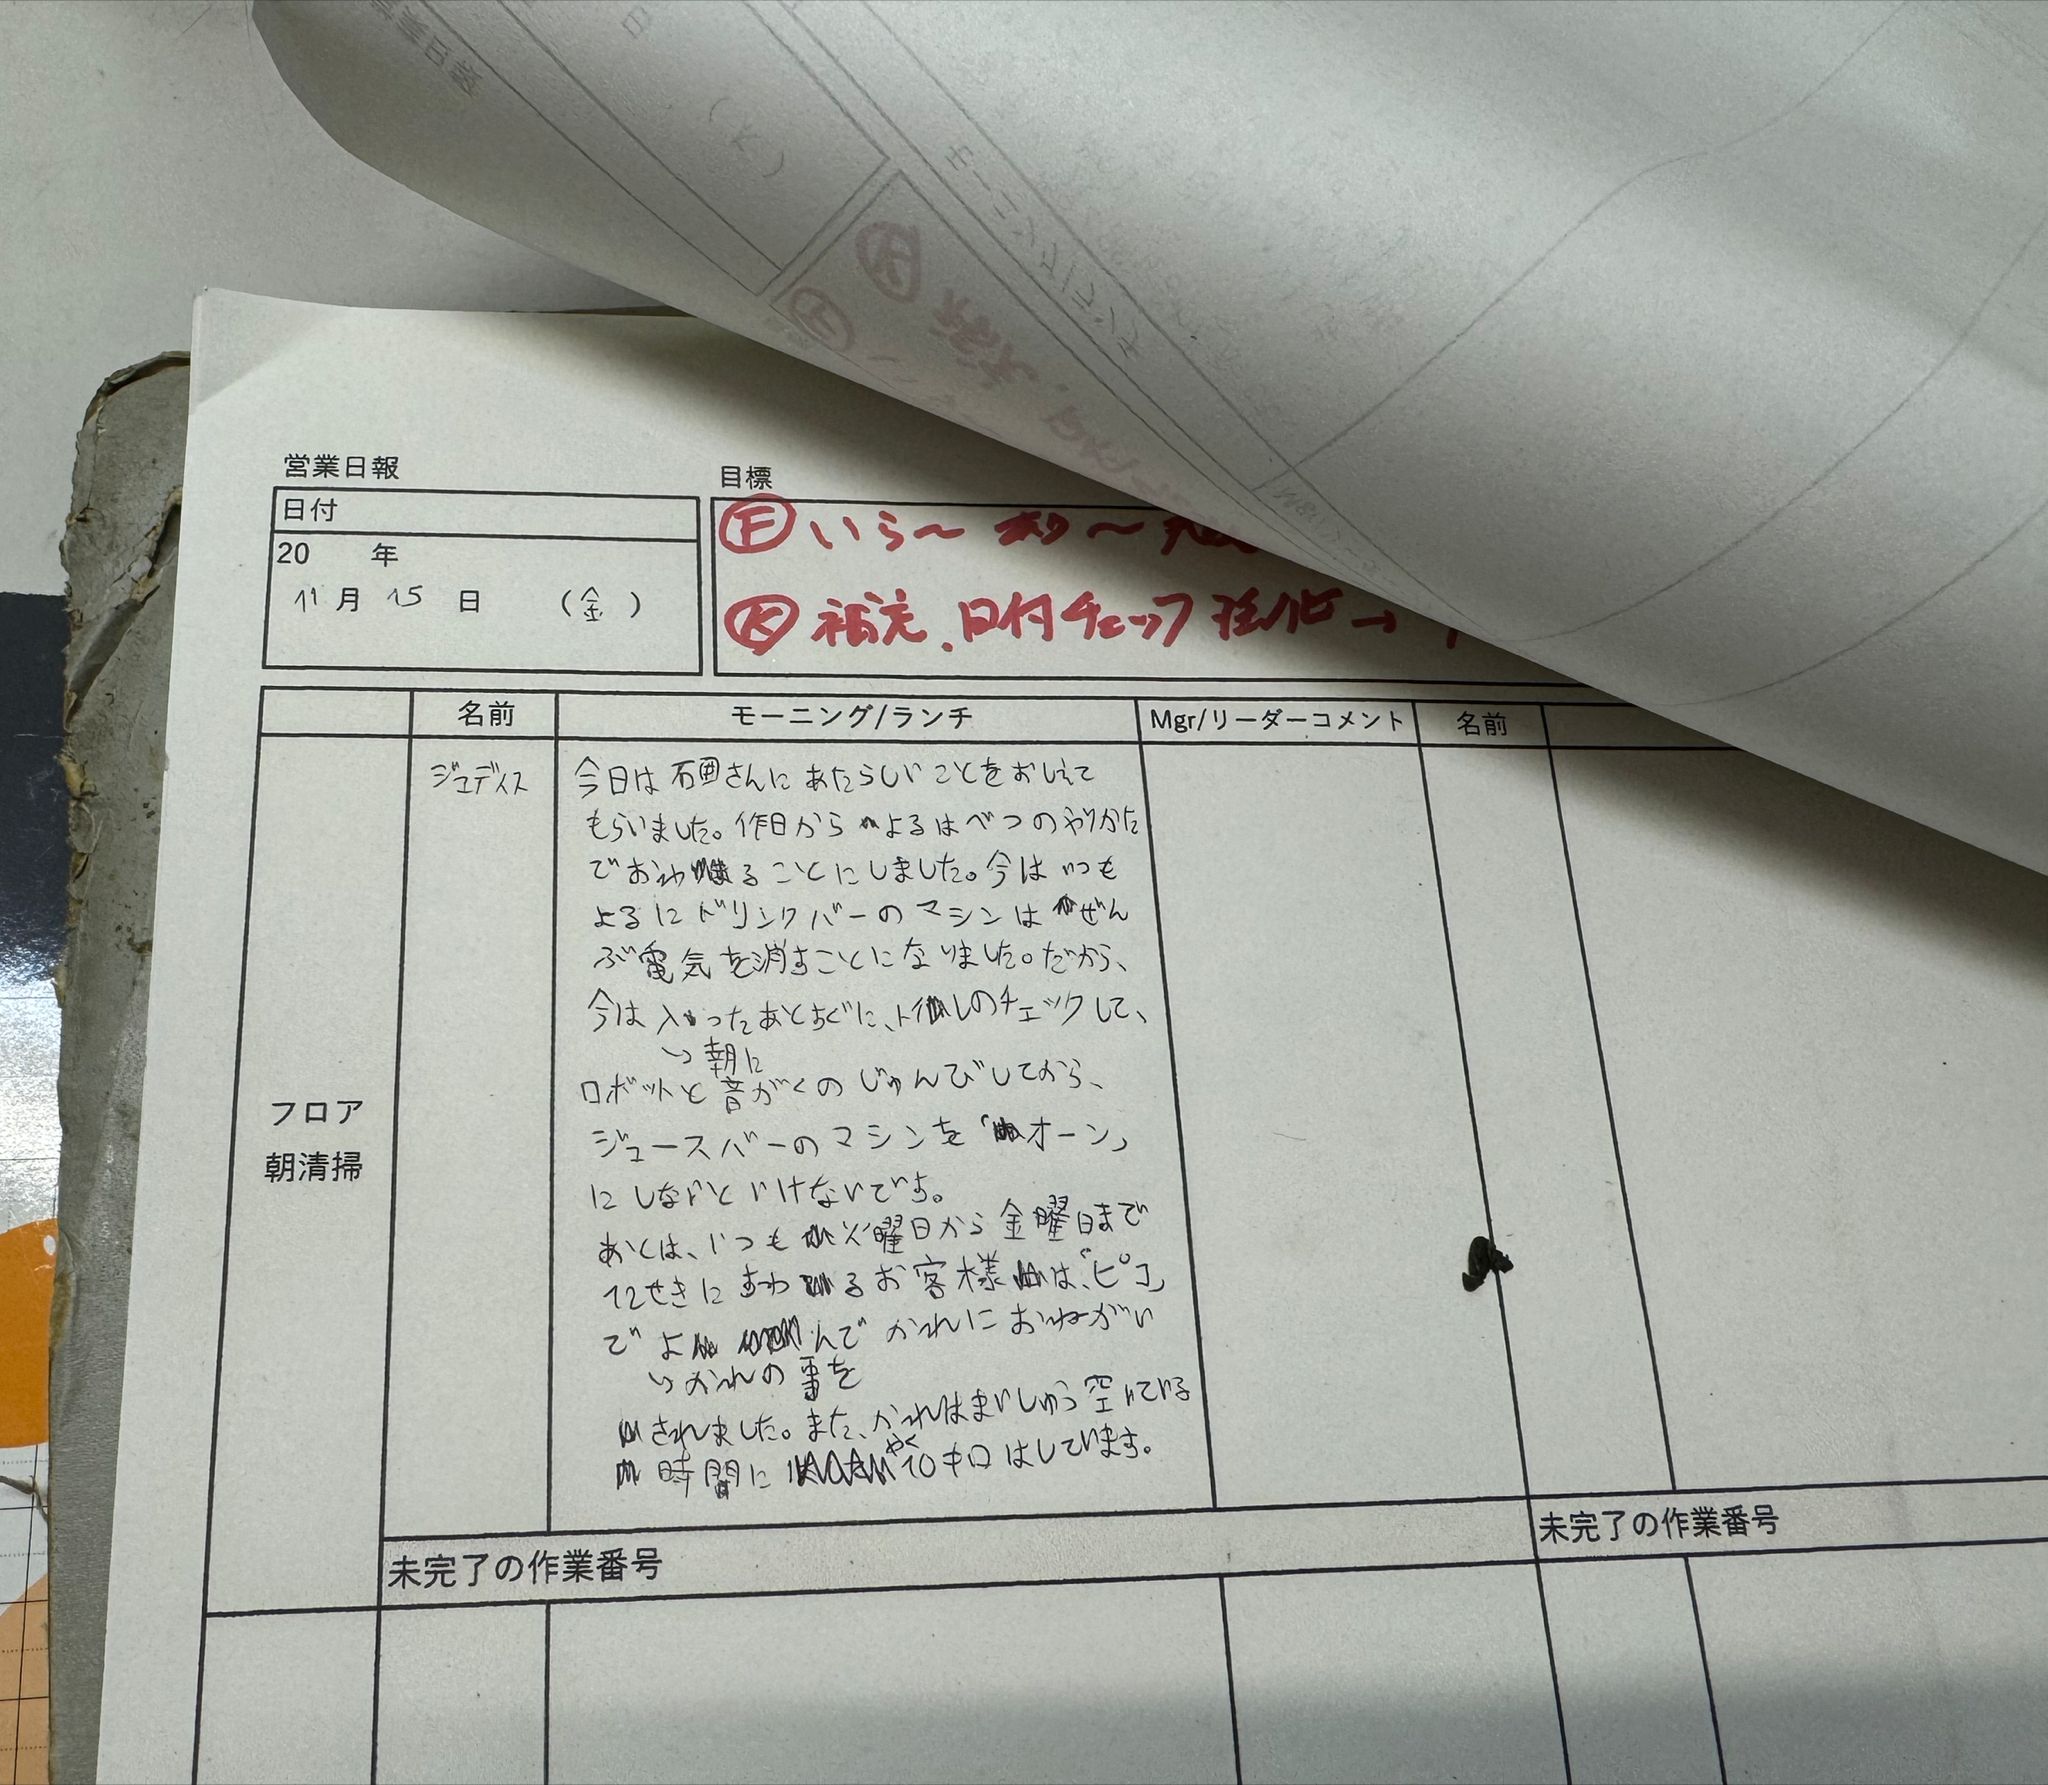 営業日報
日付
20 年
11月 15日 (金)
目標
Ⓕ いら〜
Ⓚ 補充、日付チェック 強化→
名前
モーニング/ランチ
Mgr/リーダーコメント
名前
フロア
朝清掃
ジュディス
今日は石田さんにあたらしいことをおしえて
もらいました。作日から よるはべつのやりかた
でおわることにしました。今はいつも
よるにドリンクバーのマシンは ぜん
ぶ電気を消すことになりました。だから、
今は入ったあとすぐに、トイレのチェックして、
↪朝に
ロボットと音がくのじゅんびしてから、
ジュースバーのマシンを「オーン」
にしないといけないです。
あとは、いつも 火曜日から金曜日まで
12せきにすわるお客様は、「ピコ」
でよんで かれにおねがい
↪かれの事を
されました。また、かれはまいしゅう空いている
時間に やく10キロはしています。
未完了の作業番号
未完了の作業番号